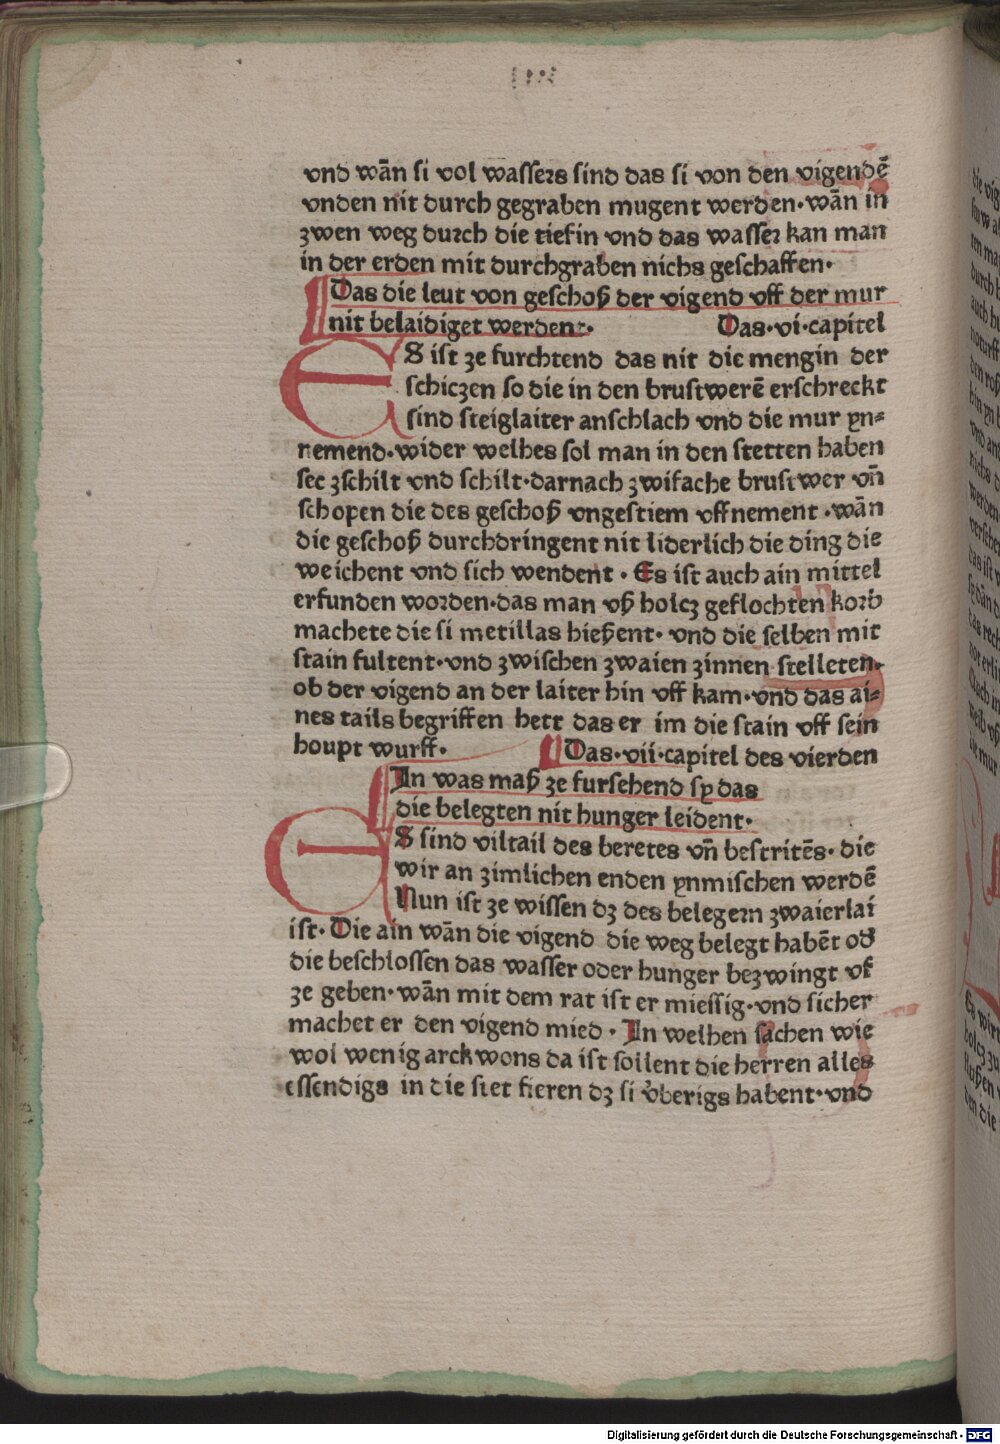 vnd wān si vol wassers sind das si von den vigendē
vnden nit durch gegraben mugent werden·wān in
zwen weg durch die tiefin vnd das wasser kan man
in der erden mit durchgraben nichs geschaffen·
Das die leut von geschoß der vigend vff der mur
nit belaidiget werden:· Das·vi·capitel
ES ist ze furchtend das nit die mengin der
schiczen so die in den brustwerē erschreckt
sind steiglaiter anschlach vnd die mur yn⸗
nemend·wider welhes sol man in den stetten haben
sec zschilt vnd schilt·darnach zwifache brustwer vn̄
schopen die des geschoß vngestiem vffnement·wān
die geschoß durchdringent nit liderlich die ding die
weichent vnd sich wendent· Es ist auch ain mittel
erfunden worden·das man vß holcz geflochten korb
machete die si metillas hießent· vnd die selben mit
stain fultent·vnd zwischen zwaien zinnen stelleten·
ob der vigend an der laiter hin vff kam·vnd das ai⸗
nes tails begriffen hett das er im die stain vff sein
houpt wurff· Das·vii·capitel des vierden
In was maß ze fursehend sy das
die belegten nit hunger leident·
ES sind viltail des beretes vn̄ bestritēs· die
wir an zimlichen enden ynmischen werdē
Nun ist ze wissen dz des belegern zwaierlai
ist· Die ain wān die vigend die weg belegt habēt od̓
die beschlossen das wasser oder hunger bezwingt vf
ze geben·wān mit dem rat ist er miessig·vnd sicher
machet er den vigend mied· In welhen sachen wie
wol wenig arckwons da ist sollent die herren alles
essendigs in die stet fieren dz si v̓berigs habent·vnd
Digitalisierung gefördert durch die Deutsche Forschungsgemeinschaft - DFG